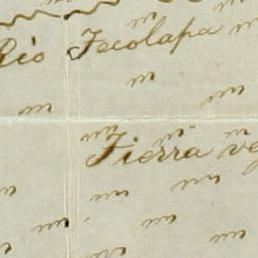 Rio Tecolapa
Tierra